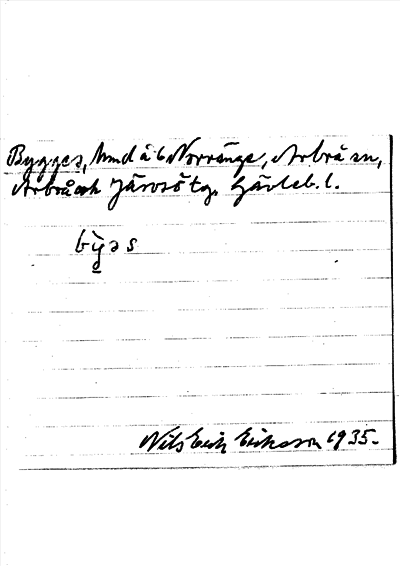 Bygges, hmd å 6 Norränge, Arbrå sn,
Arbrå och Järvsö tg. Gävleb. l.
býəs
Nils Erik Eriksson 1935.